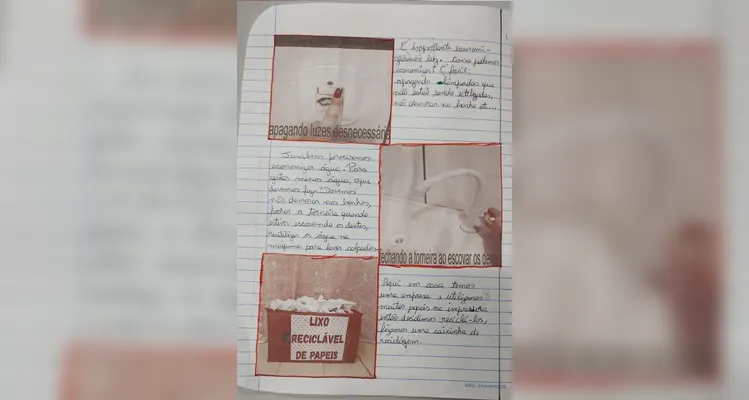 É importante economi-
zarmos luz. Como podemos
economizar? É fácil:
apagando lâmpadas que
não estão sendo utilizadas,
não demorar no banho etc...
apagando luzes desnecessária
Também precisamos
economizar água. Para
gastar menos água, o que
devemos fazer? Devemos
não demorar nos banhos,
fechar a torneira quando
estiver escovando os dentes,
reutilizar a água na
máquina para lavar calçadas
echando a torneira ao escovar os de
Aqui em casa temos
uma empresa e utilizamos
muitos papéis na impressora
então decidimos reciclá-los,
fizemos uma caixinha de
reciclagem.
LIXO
RECICLÁVEL
DE PAPEIS
SÃO DOMINGOS